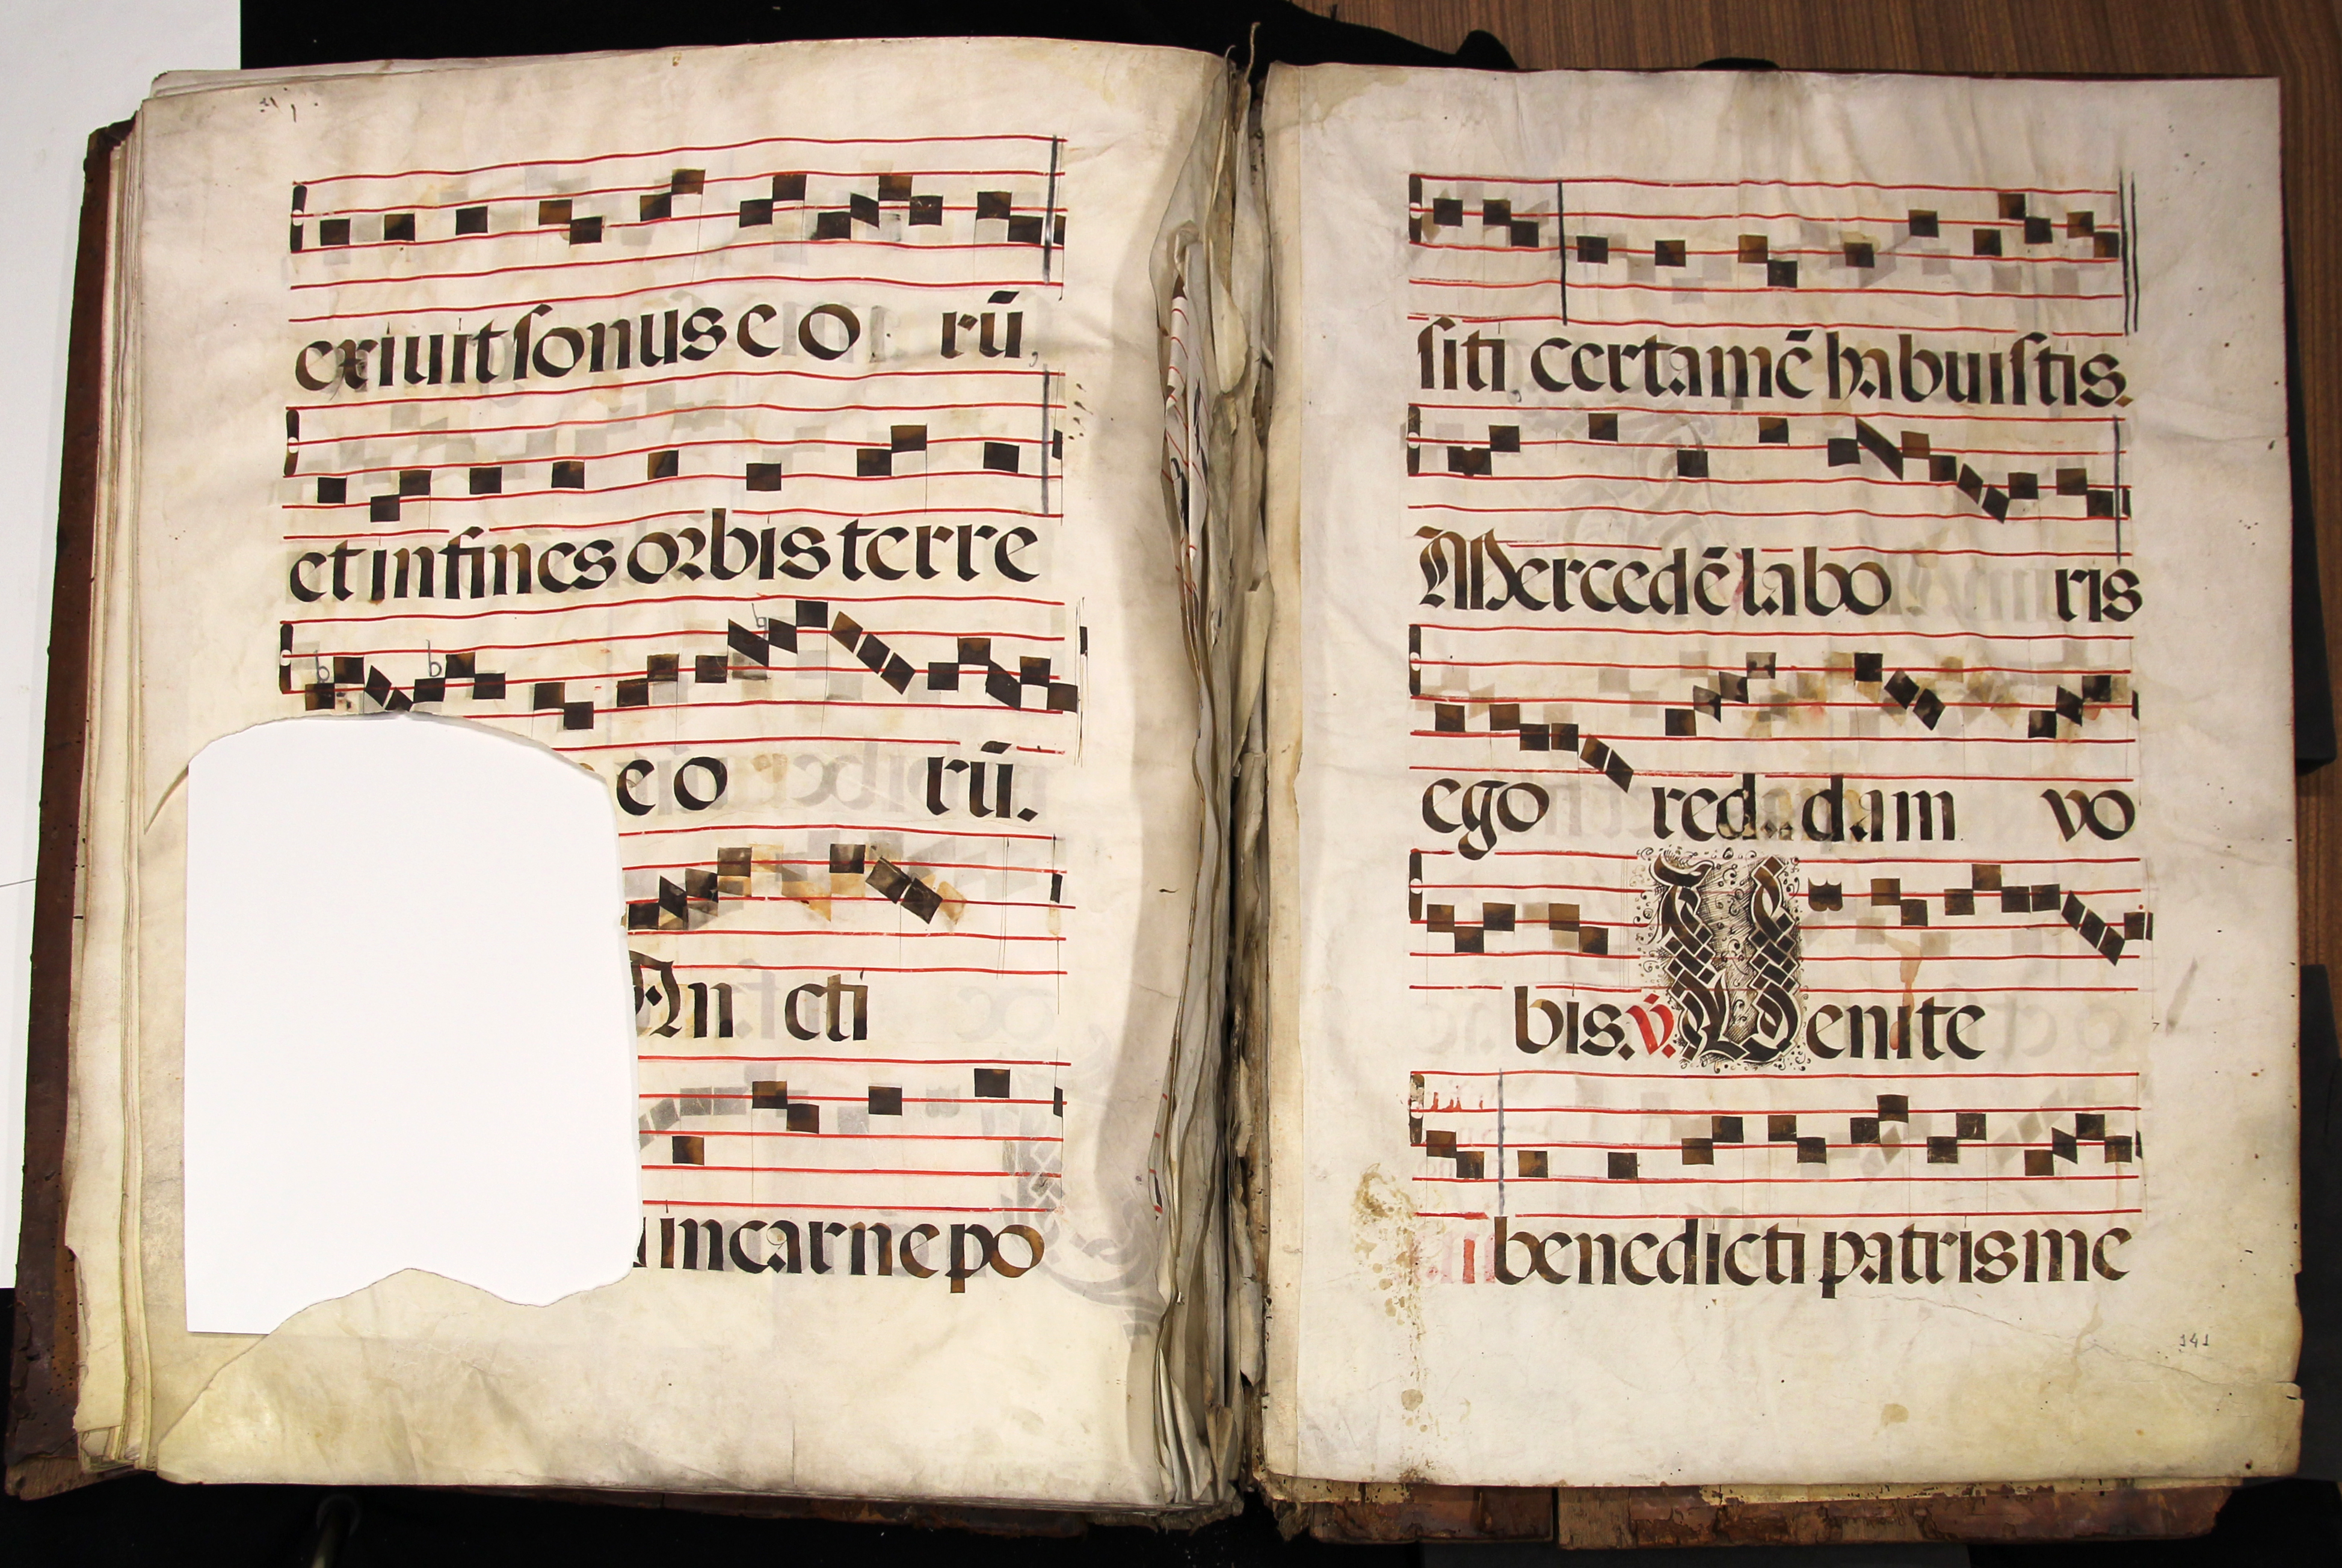 exiuit sonus eo rū,
et in fines orbis terre
eo rū.
An cti
incarne po
siti, certamē habuistis.
Mercedē labo ris
ego red dam vo
bis. v. Venite
benedicti patris me
141